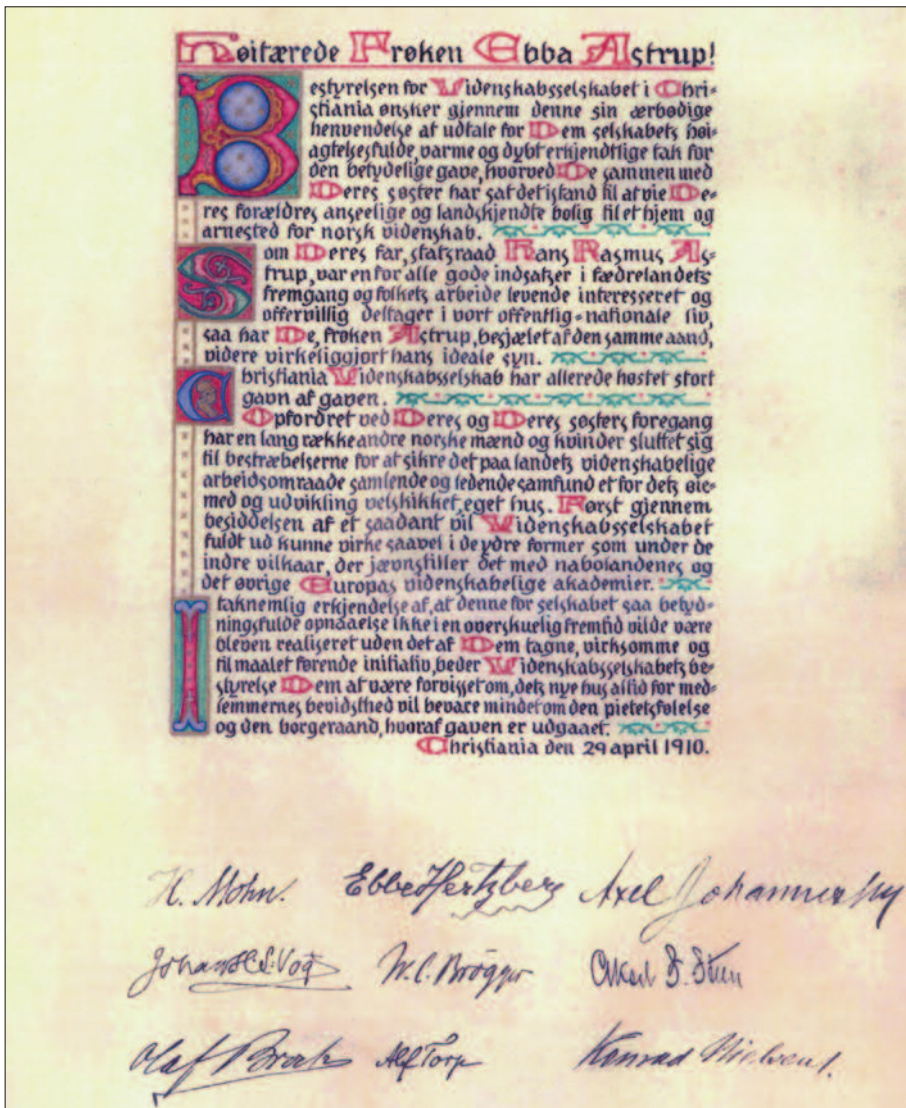 Høitærede Frøken Ebba Astrup!
Bestyrelsen for Videnskabsselskabet i Chri-
stiania ønsker gjennem denne sin ærbødige
henvendelse at udtale for Dem selskabets høi-
agtelsesfulde, varme og dybt erkjendtlige tak for
den betydelige gave, hvorved De sammen med
Deres søster har sat det istand til at vie De-
res forældres anseelige og landskjendte bolig til et hjem og
arnested for norsk videnskab.
Som Deres far, statsraad Hans Rasmus As-
trup, var en for alle gode indsatser i fædrelandets
fremgang og folkets arbeide levende interesseret og
offervillig deltager i vort offentlig-nationale liv,
saa har De, frøken Astrup, besjælet af den samme aand,
videre virkeliggjort hans ideale syn.
Christiania Videnskabsselskab har allerede høstet stort
gavn af gaven.
Opfordret ved Deres og Deres søsters foregang
har en lang række andre norske mænd og kvinder sluttet sig
til bestræbelserne for at sikre det paa landets videnskabelige
arbeidsomraade samlende og ledende samfund et for dets øie-
med og udvikling velskikket, eget hus. Først gjennem
besiddelsen af et saadant vil Videnskabsselskabet
fuldt ud kunne virke saavel i de ydre former som under de
indre vilkaar, der jævnstiller det med nabolandenes og
det øvrige Europas videnskabelige akademier.
I taknemlig erkjendelse af, at denne for selskabet saa betyd-
ningsfulde opnaaelse ikke i en overskuelig fremtid vilde være
bleven realiseret uden det af Dem tagne, virksomme og
til maalet førende initiativ, beder Videnskabsselskabets be-
styrelse Dem at være forvisset om, dets nye hus altid for med-
lemmernes bevidsthed vil bevare mindet om den pietetsfølelse
og den borgeraand, hvoraf gaven er udgaaet.
Christiania den 29 april 1910.
H. Mohn. Ebbe Hertzberg Axel Johannessen
Johan H.L. Vogt W. C. Brøgger
Olaf Broch Alf Torp Konrad Nielsen